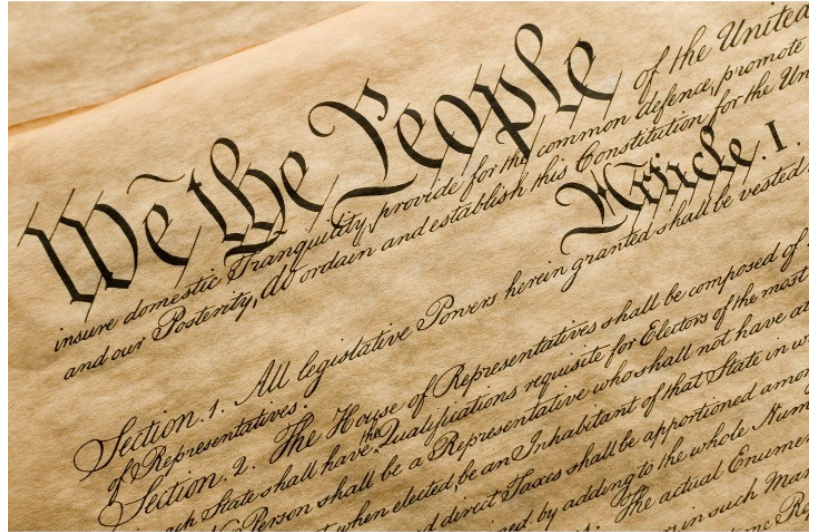 We the People of the United
insure domestic Tranquility, provide for the common defence, promote
and our Posterity, do ordain and establish this Constitution for the Un
Article. I.
Section. 1. All legislative Powers herein granted shall be vested
of Representatives.
Section. 2. The House of Representatives shall be composed of
ach State shall have the Qualifications requisite for Electors of the most
No Person shall be a Representative who shall not have at
not when elected, be an Inhabitant of that State in w
d direct Taxes shall be apportioned amon
ned by adding to the whole Num
The actual Enumer
in such Man